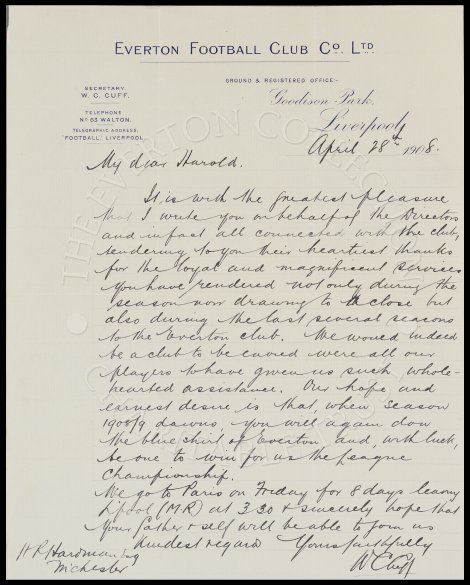 EVERTON FOOTBALL CLUB CO. LTD.
GROUND & REGISTERED OFFICE:-
SECRETARY
W. C. CUFF.
TELEPHONE
No 63 WALTON.
TELEGRAPHIC ADDRESS,
"FOOTBALL," LIVERPOOL.
Goodison Park,
Liverpool,
April 28th 1908.
My dear Harold.
It is with the greatest pleasure
that I write you on behalf of the Directors
and in fact all connected with the club,
tendering to you their heartiest thanks
for the loyal and magnificent services
you have rendered not only during the
season now drawing to a close but
also during the last several seasons
to the Everton club. We would indeed
be a club to be envied were all our
players to have given us such whole-
hearted assistance. Our hope and
earnest desire is that, when season
1908/9 dawns, you will again don
the blue shirt of Everton and, with luck,
be one to win for us the League
Championship.
We go to Paris on Friday for 8 days leaving
L'pool (M.R) at 3.30 & sincerely hope that
your father & self will be able to join us
Kindest regards Yours faithfully
W C Cuff
H P Hardman Esq
M'chester
THE EVERTON COLLECTION